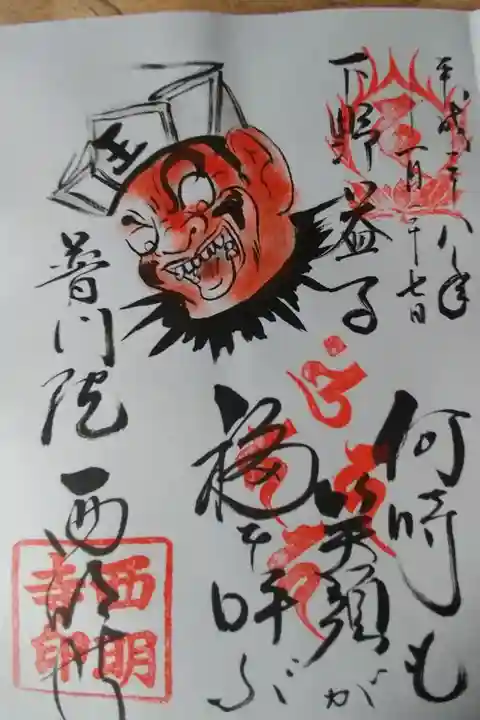 平成二十八年
十一月二十七日
下野益子
何時も
笑顔が
福を呼ぶ
王
普門院 西明寺
西明
寺印